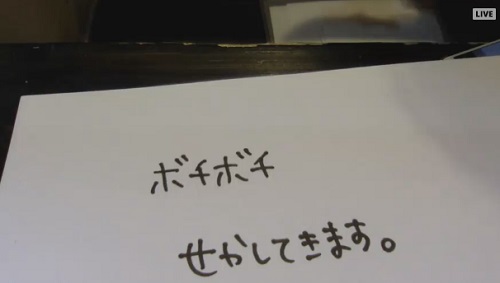 LIVE
ボチボチ
せかしてきます。